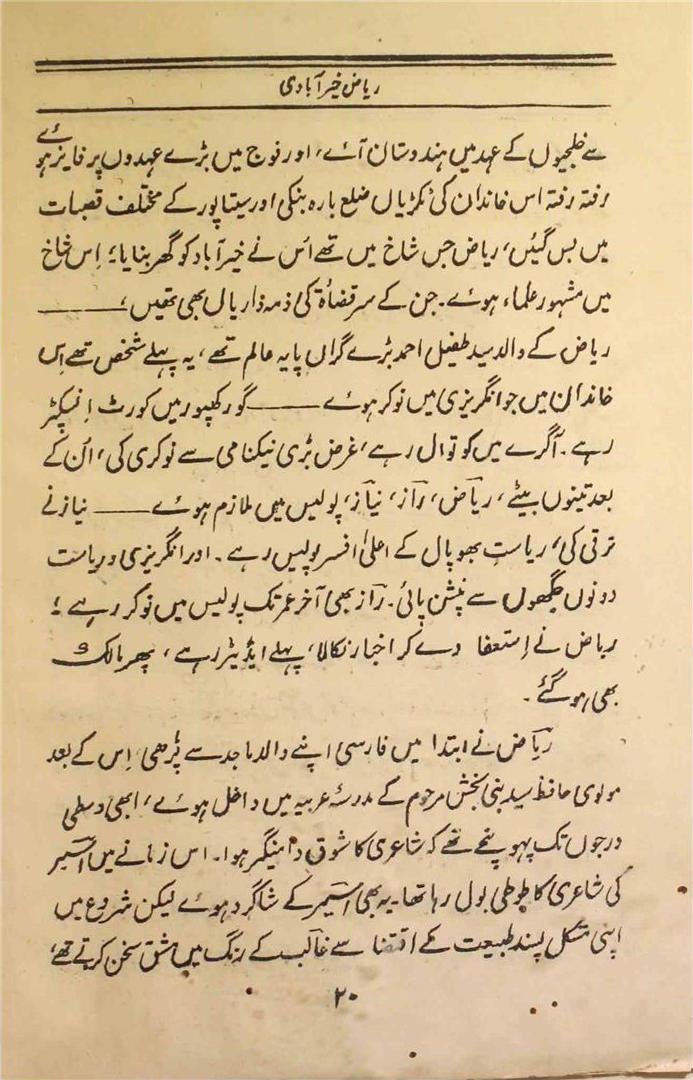 ریاض خیرآبادی
سے خلجیوں کے عہد میں ہندوستان آئے، اور فوج میں بڑے عہدوں پر فایز ہوئے
رفتہ رفتہ اس خاندان کی ٹکڑیاں ضلع بارہ بنکی اور سیتاپور کے مختلف قصبات
میں بس گئیں، ریاض جس شاخ میں تھے اُس نے خیرآباد کو گھر بنایا؛ اِس شاخ
میں مشہور علماء ہوئے۔ جن کے سر قضاۃ کی ذمہ داریاں بھی تھیں، ——
ریاض کے والد سید طفیل احمد بڑے گراں پایہ عالم تھے، یہ پہلے شخص تھے اِس
خاندان میں جو انگریزی میں نوکر ہوئے —— گورکھپور میں کورٹ اِنسپکٹر
رہے۔ آگرے میں کوتوال رہے، غرض بڑی نیکنامی سے نوکری کی، اُن کے
بعد تینوں بیٹے، ریاض، راز، نیاز، پولیس میں ملازم ہوئے —— نیاز نے
ترقی کی، ریاستِ بھوپال کے اعلیٰ افسر پولیس رہے۔ اور انگریزی و ریاست
دونوں جگہوں سے پنشن پائی۔ راز بھی آخر عمر تک پولیس میں نوکر رہے؛
ریاض نے اِستعفا دے کر اخبار نکالا، پہلے ایڈیٹر رہے، پھر مالک
بھی ہو گئے۔
ریاض نے ابتدا میں فارسی اپنے والد ماجد سے پڑھی اِس کے بعد
مولوی حافظ سید نبی بخش مرحوم کے مدرسۂ عربیہ میں داخل ہوئے، ابھی وسطی
درجوں تک پہونچے تھے کہ شاعری کا شوق دامنگیر ہوا۔ اس زمانے میں اسیر
کی شاعری کا طوطی بول رہا تھا۔ یہ بھی اسیر کے شاگرد ہوئے لیکن شروع میں
اپنی مشکل پسند طبیعت کے اقتضا سے غالب کے رنگ میں مشق سخن کرتے تھے،
۲۰